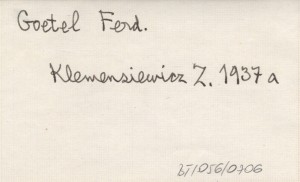 Goetel Ferd.
Klemensiewicz Z. 1937 a
BT/056/0706